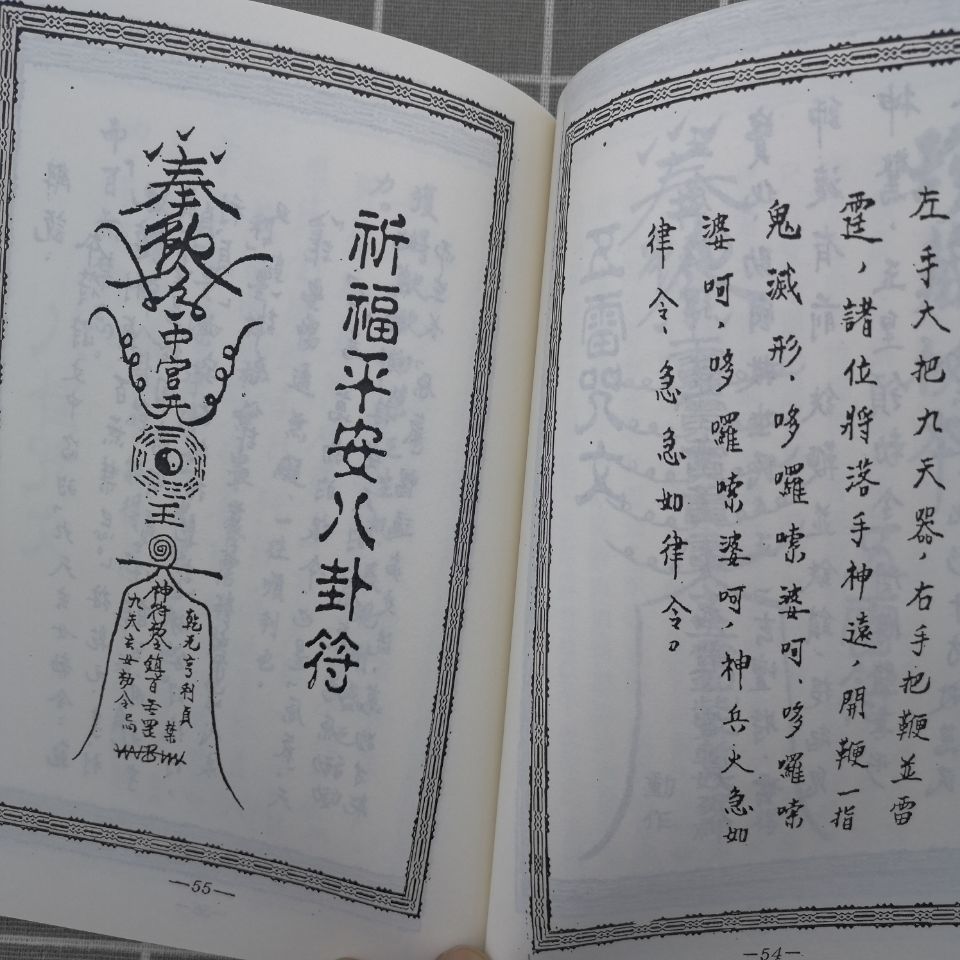 左手大把九天器，右手把鞭並雷
霆，諸位將落手神遠，開鞭一指
鬼滅形．哆囉嗦婆呵．哆囉嗦
婆呵，哆囉嗦婆呵，神兵火急如
律令、急急如律令。
—54—
祈福平安八卦符
奉
中宮
王
乾元亨利貞
神符
鎮百
九天玄女敕令
—55—